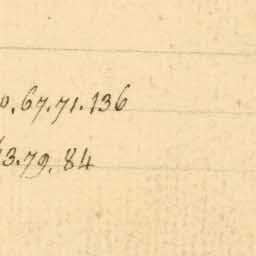 0.67.71.136
3.79.84